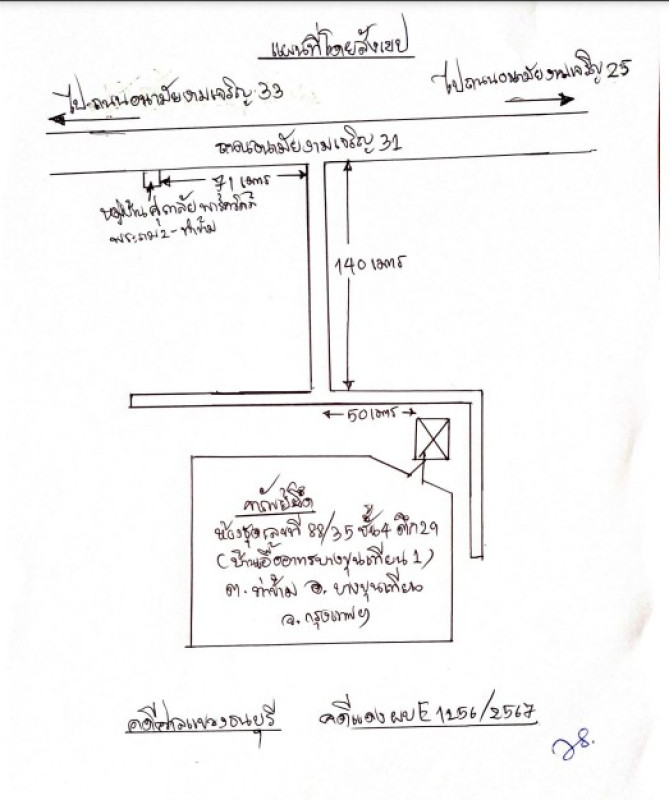 แผนที่โดยสังเขป
ไปถนนอนามัยงามเจริญ 33
ไปถนนอนามัยงามเจริญ 25
ถนนอนามัยงามเจริญ 31
71 เมตร
หมู่บ้านศุภาลัย พาร์ควิลล์
พระราม2-ท่าข้าม
140 เมตร
50 เมตร
ทรัพย์ยึด
ห้องชุดเลขที่ 88/35 ชั้น4 ตึก29
(บ้านเอื้ออาทรบางขุนเทียน 1)
ต. ท่าข้าม อ. บางขุนเทียน
จ. กรุงเทพฯ
คดีศาลแขวงธนบุรี คดีแดง ผบE 1256/2567